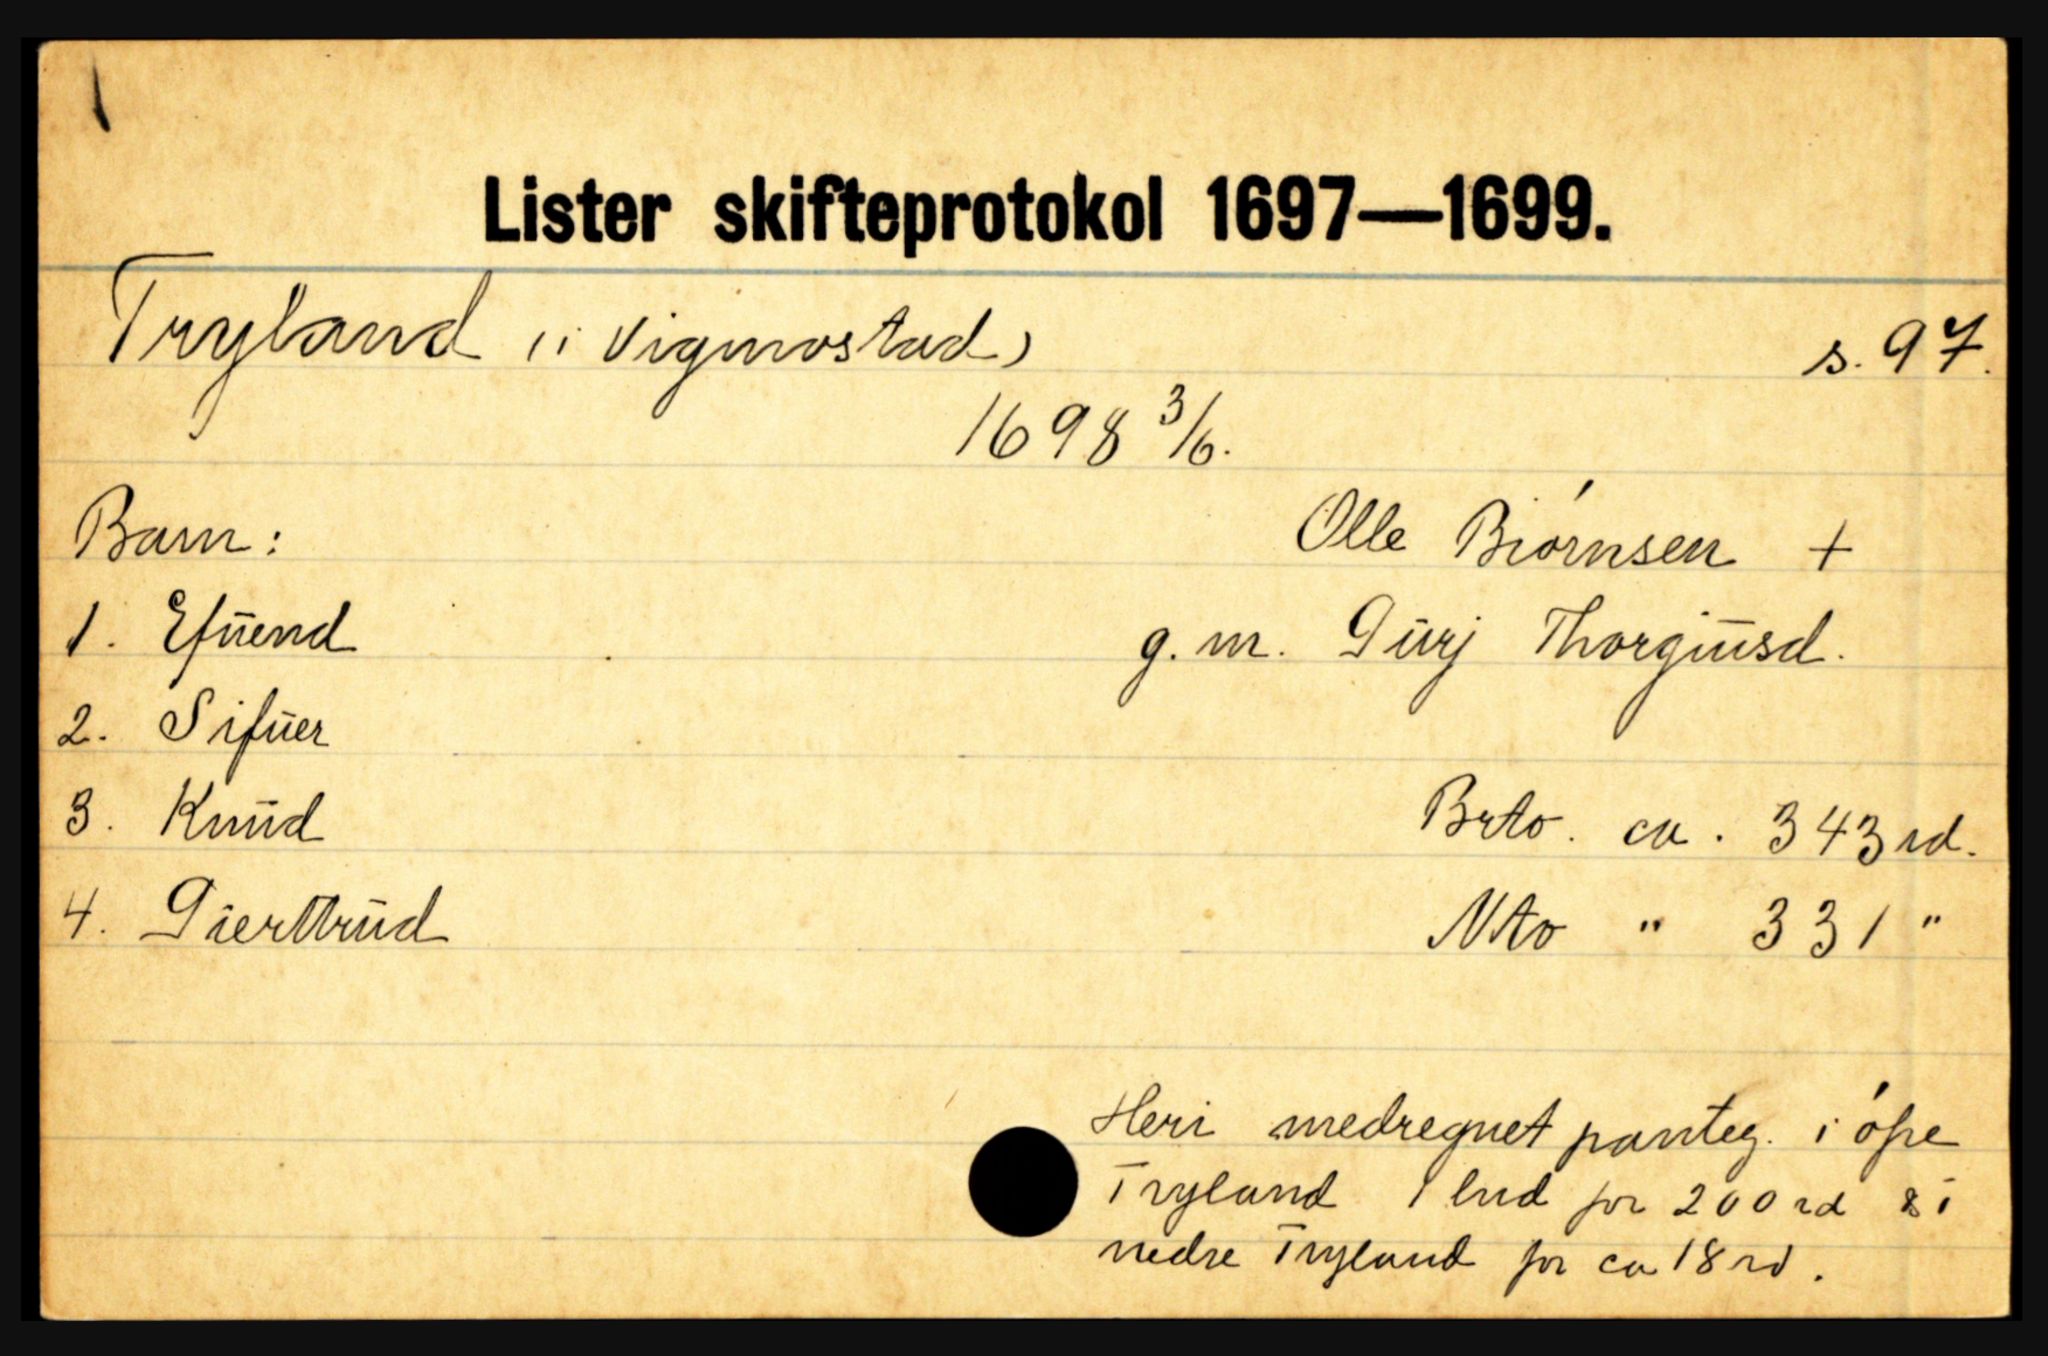 Lister skifteprotokol 1697—1699.
Tryland (i Vigmostad) s. 97.
1698 3/6.
Barn: Olle Biórnsen +
1. Efūend g. m. Gūrj Thorgiūsd.
2. Sifūer
3. Knūd Brto. ca. 343 rd.
4. Gierttrūd Nto " 331 "
Heri medregnet panteg. i ófre
Tryland 1 hud for 200 rd & i
nedre Tryland for ca 18 rd.